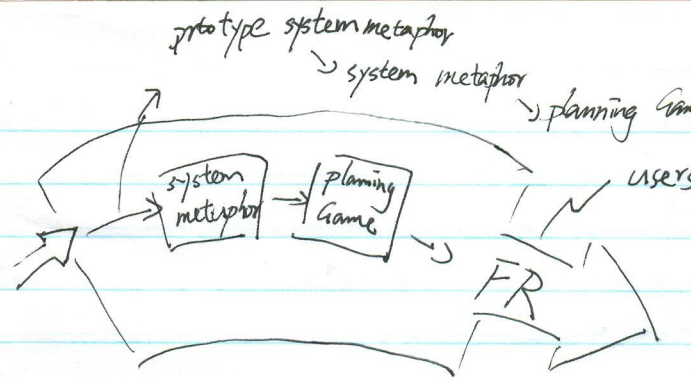 prototype system metaphor
system metaphor
planning Gam
users
system
metaphor
planing
Game
FR